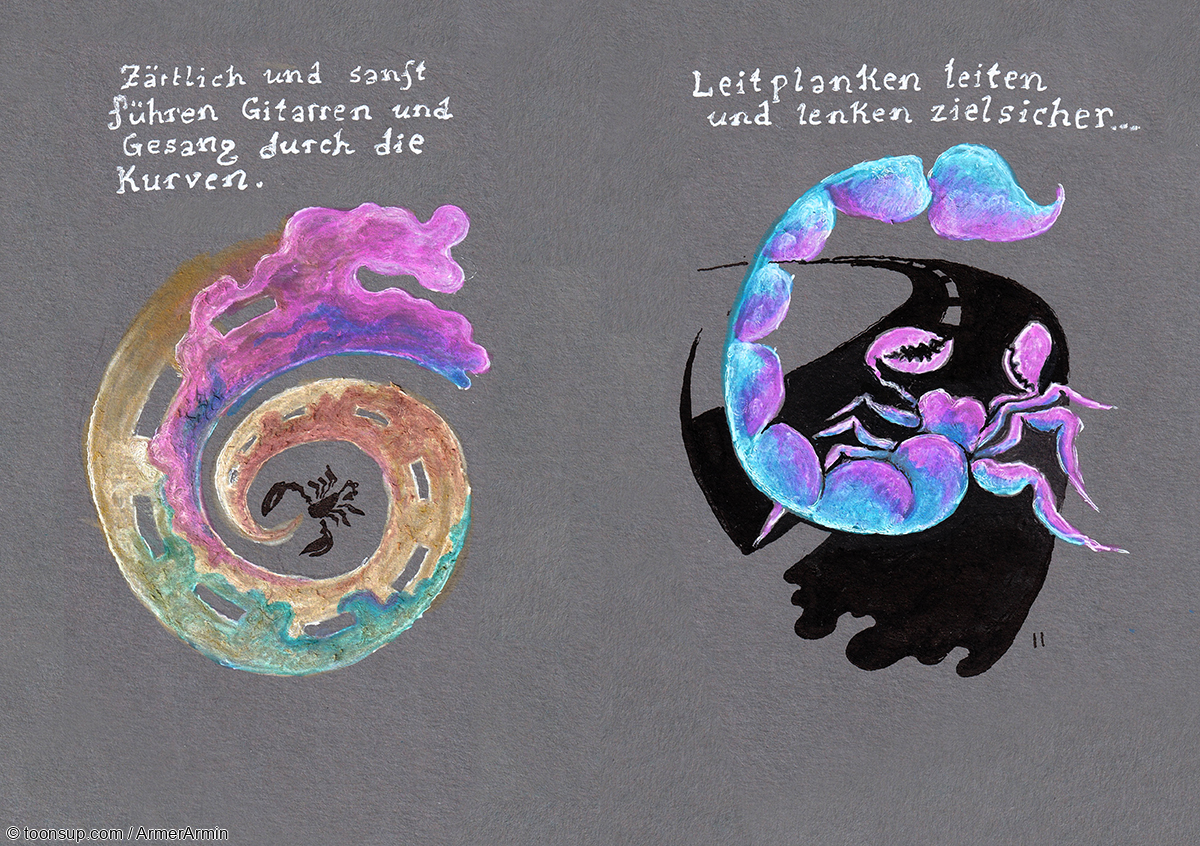 Zärtlich und sanft
führen Gitarren und
Gesang durch die
Kurven.
Leitplanken leiten
und lenken zielsicher...
11
© toonsup.com / ArmerArmin